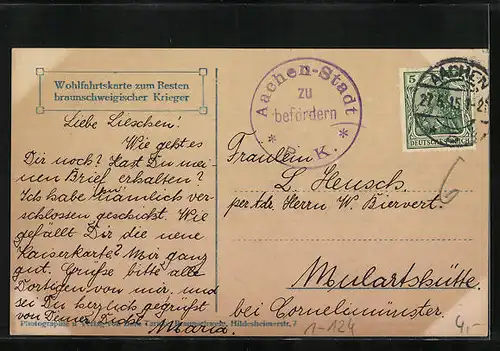 Wohlfahrtskarte zum Besten
braunschweigischer Krieger
Liebe Lieschen!
Wie geht es
Dir noch? Hast Du mei-
nen Brief erhalten?
Ich habe ihn nämlich ver-
schlossen geschickt. Wie
gefällt Dir die neue
Kaiserkarte? Mir ganz
gut. Grüße bitte alle
Dortigen von mir, und
sei Du herzlich gegrüßt
von Deiner
Maria.
Aachen-Stadt
zu
befördern
* P. K. *
5
DEUTSCHES REICH
AACHEN
Fräulein
L. Heusch.
per. Adr. Herrn W. Biervert.
Mulartshütte
bei Cornelimünster.
Photographie u. Verlag von Braunschweig, Hildesheimerstr.
1-124
4,-